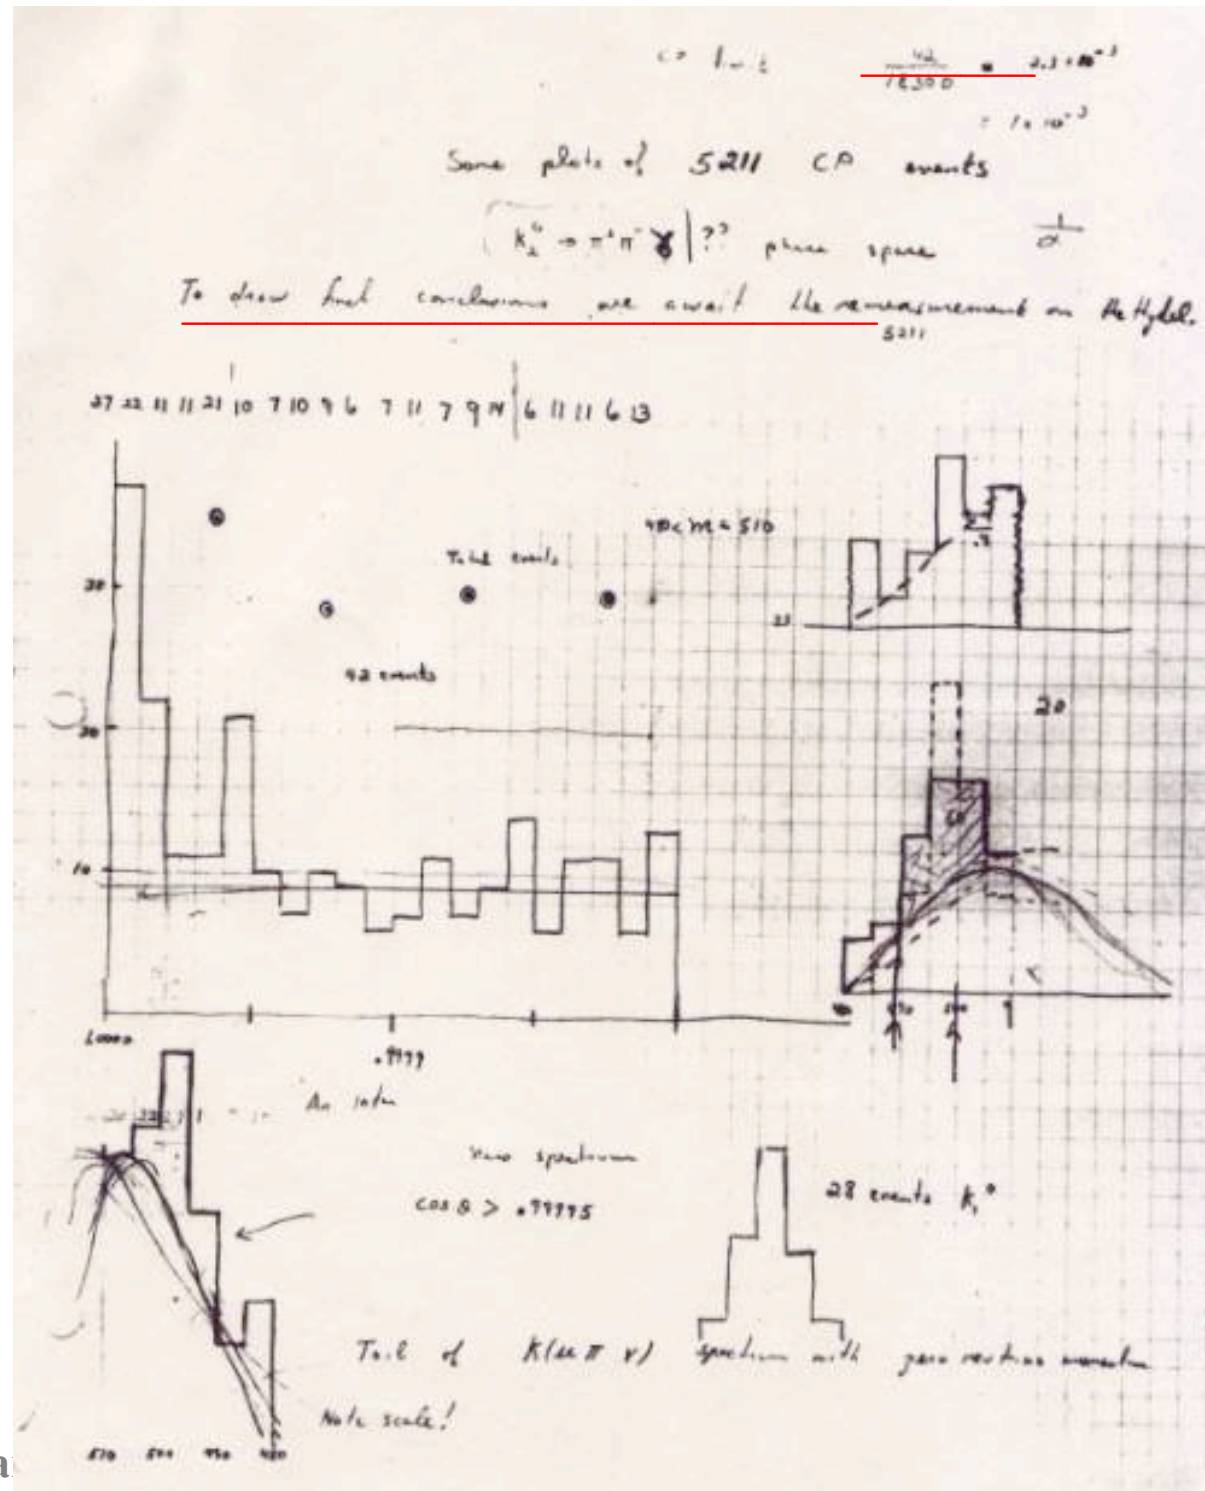 42
18300 = 2.3 × 10⁻³
= 1 × 10⁻³
Some plots of 5211 CP events
K₂⁰ → π⁺ π⁻ γ | ?? phase space 1/α
To draw final conclusions we await the remeasurement on the Hydel.
5211
27 22 11 11 21 10 7 10 9 6 7 11 7 9 14 6 11 11 6 13
< m < 510
Total events
30
42 events
20
20
10
1.0000
.9999
spectrum
cos θ > .99995
28 events K₁⁰
Tail of K(μ π ν) spectrum with zero neutrino momentum
Note scale!
510 500 490 480